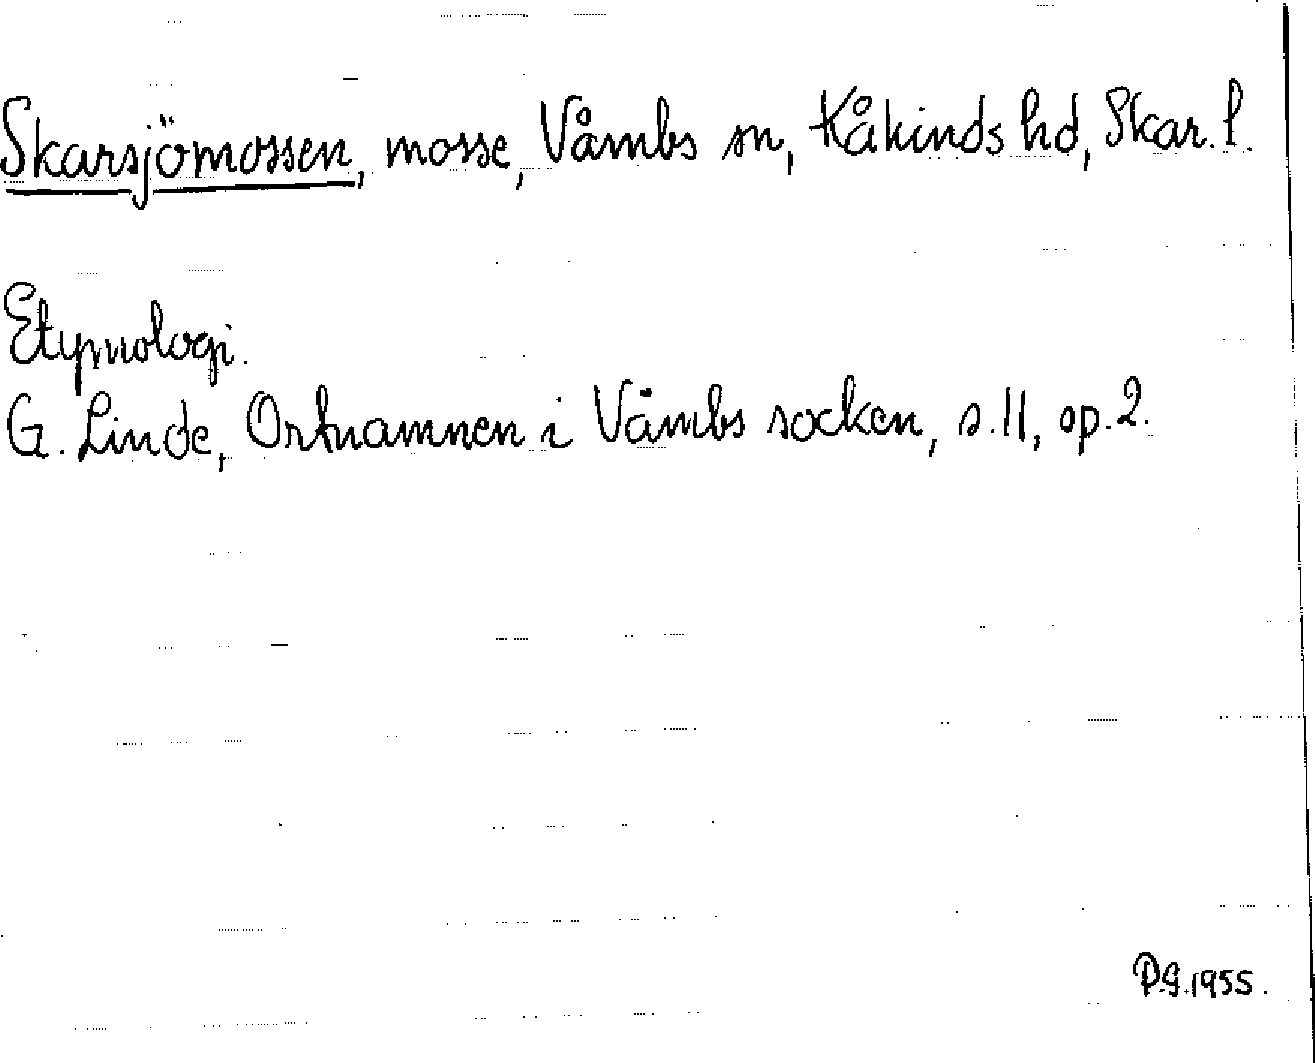 Skarsjömossen, mosse, Våmbs sn, Kåkinds hd, Skar. l.
Etymologi.
G. Linde, Ortnamnen i Våmbs socken, s. 11, sp. 2.
P.G. 1955.